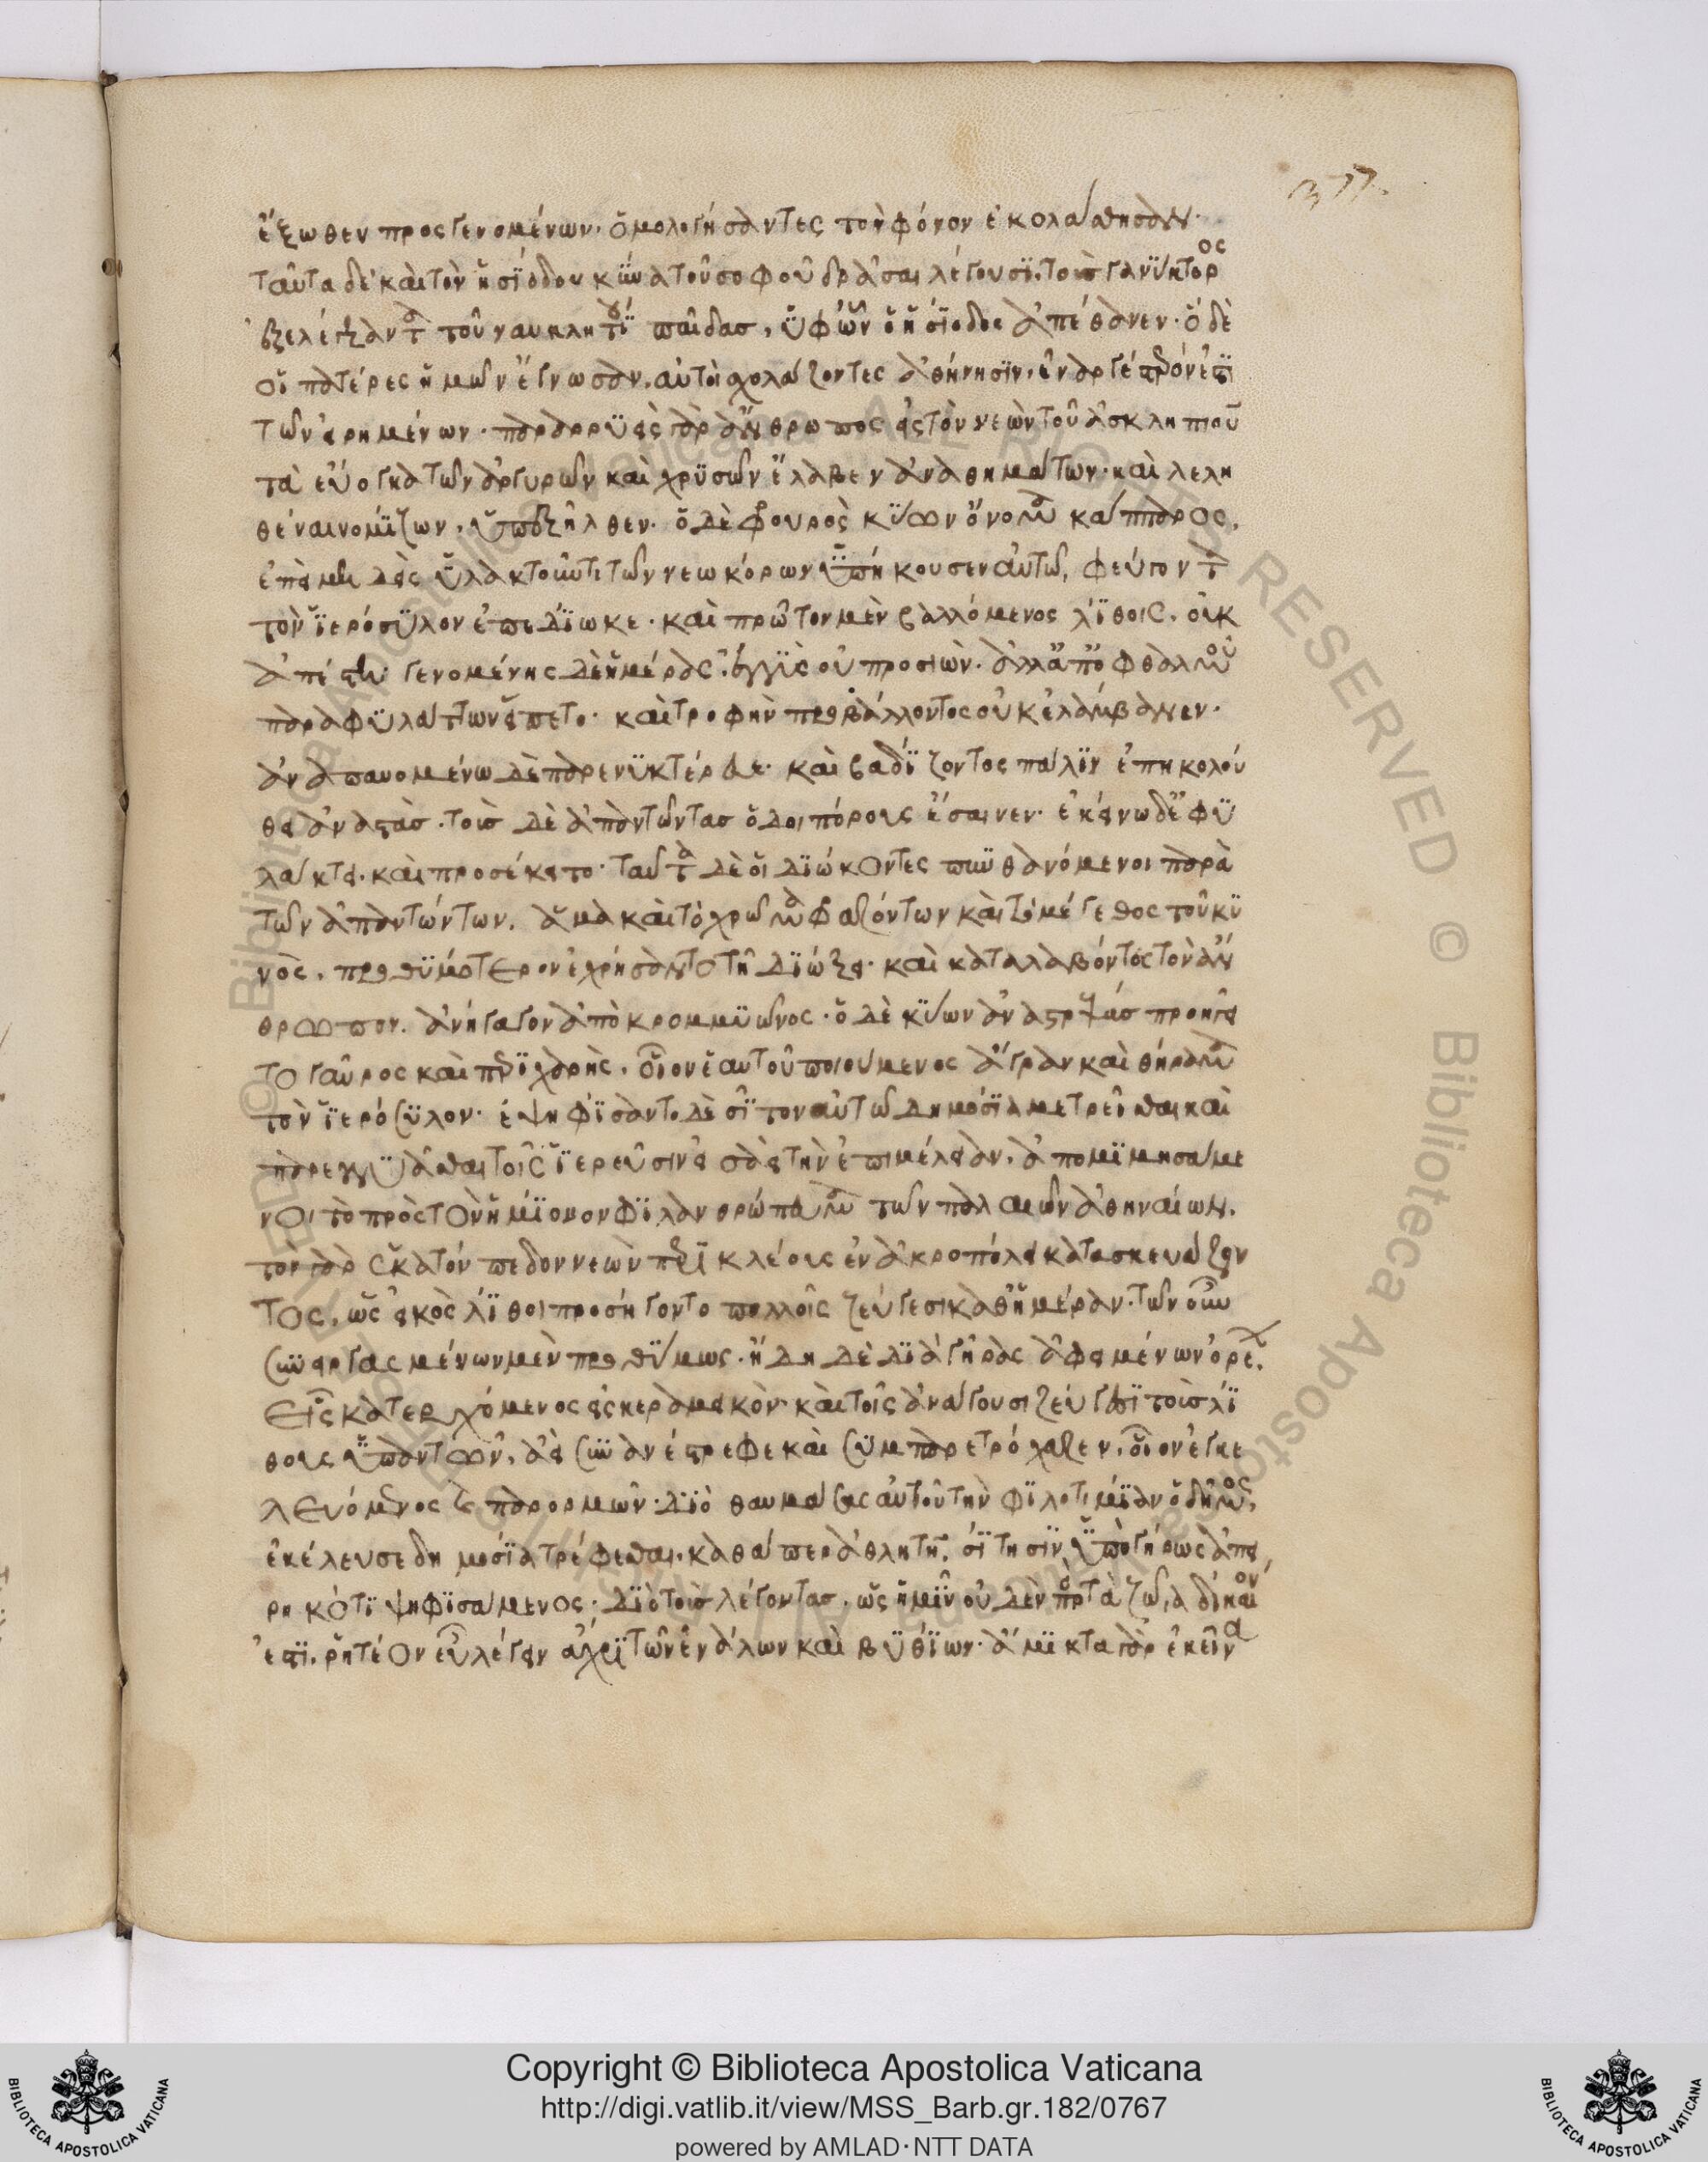 377.
ἔξωθεν προσγενομένων. ὁμολογήσαντες τὸν φόνον ἐκολάσθησαν.
ταῦτα δὲ καὶ τὸν ἡσϊόδου κύνα τοῦ σοφοῦ δρᾶσαι λέγουσϊ. τοὺς γανΰκτορος
ἐξελέγξαντα τοῦ ναυπακτίου παῖδας, ὑφ' ὧν ὁ ἡσΐοδος ἀπέθανεν. ὃ δὲ
οἱ πατέρες ἡμῶν ἔγνωσαν. αὐτοὶ σχολάζοντες ἀθήνησϊν. ἐναργέστερόν ἐστι
τῶν εἰρημένων. παραρρυεὶς γὰρ ἄνθρωπος εἰς τὸν νεὼν τοῦ ἀσκληπιοῦ
τὰ εὔογκα τῶν ἀργυρῶν καὶ χρυσῶν ἔλαβεν ἀναθημάτων. καὶ λελη
θέναι νομΐζων, ὑπεξῆλθεν. ὁ δὲ φρουρὸς κΰων ὄνομα κάππαρος,
ἐπεὶ μηδεὶς ὑλακτοῦντι τῶν νεωκόρων ὑπήκουσεν αὐτῶ, φεύγοντα
τὸν ἱερόσϋλον ἐπεδΐωκε. καὶ πρῶτον μὲν βαλλόμενος λΐθοις, οὐκ
ἀπέστη. γενομένης δὲ ἡμέρας. ἐγγὺς οὐ προσιὼν. ἀλλ' ἀπὸ ὀφθαλμοῦ
παραφϋλάττων εἵπετο. καὶ τροφὴν προβάλλοντος οὐκ ἐλάμβανεν.
ἀναπαυομένω δὲ παρενϋκτέρευε. καὶ βαδΐζοντος πάλϊν ἐπηκολού
θει ἀναστάς. τοὺς δὲ ἀπαντῶντας ὁδοιπόρους ἔσαινεν. ἐκείνω δ' ἐφϋ
λάκτει. καὶ προσέκειτο. ταῦτα δὲ οἱ διώκοντες πυνθανόμενοι παρὰ
τῶν ἀπαντώντων. ἅμα καὶ τὸ χρῶμα φραζόντων καὶ τὸ μέγεθος τοῦ κϋ
νὸς. προθϋμότερον ἐχρήσαντο τῆ διώξει. καὶ καταλαβόντες τὸν ἄν
θρωπον. ἀνήγαγον ἀπὸ κρομμϋῶνος. ὁ δὲ κΰων ἀναστρέψας προηγεῖ
το γαῦρος καὶ περιχαρὴς. οἷον ἑαυτοῦ ποιούμενος ἄγραν καὶ θήραμα
τὸν ἱερόσϋλον. ἐψηφΐσαντο δὲ σῖτον αὐτῶ δημοσΐα μετρεῖσθαι καὶ
παρεγγϋᾶσθαι τοῖς ἱερεῦσιν εἰσαεὶ τὴν ἐπιμέλειαν. ἀπομϊμησάμε
νοι τὸ πρὸς τὸν ἡμΐονον φϊλανθρώπευμα τῶν παλαιῶν ἀθηναίων.
τὸν γὰρ ἑκατόνπεδον νεὼν περικλέους ἐν ἀκροπόλει κατασκευάζον
τος, ὡς εἰκὸς λΐθοι προσήγοντο πολλοῖς ζεύγεσι καθ' ἡμέραν. τῶν οὖν
συνειργασμένων μὲν προθΰμως. ἤδη δὲ διὰ γῆρας ἀφειμένων ὀρέων.
εἷς κατερχόμενος εἰς κεραμεικὸν. καὶ τοῖς ἀνάγουσι ζεύγεσϊ τοὺς λΐ
θους ὑπαντῶν, ἀεὶ συνανέστρεφε καὶ συμπαρετρόχαζεν. οἷον ἐγκε
λευόμενος καὶ παρορμῶν. διὸ θαυμάσας αὐτοῦ τὴν φϊλοτιμΐαν ὁ δῆμος,
ἐκέλευσε δημοσΐα τρέφεσθαι. καθάπερ ἀθλητῆ. σΐτησϊν ὑπὸ γήρως ἀπει
ρηκότϊ ψηφϊσάμενος. διὸ τοὺς λέγοντας, ὡς ἡμῖν οὐδὲν πρὸς τὰ ζῶα δίκαιόν
ἐστϊ. ῥητέον εὖ λέγειν ἄχρι τῶν ἐνάλων καὶ βϋθΐων. ἄμϊκτα γὰρ ἐκεῖνα
Copyright © Biblioteca Apostolica Vaticana
http://digi.vatlib.it/view/MSS_Barb.gr.182/0767
powered by AMLAD·NTT DATA